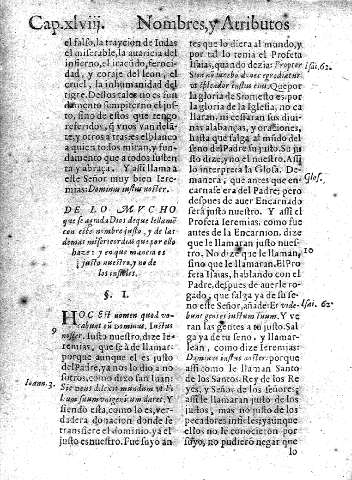 Cap.xlviij. Nombres, y Atributos
el falso, la traycion de Iudas
el miserable, la auaricia del
infierno, el tragadero, fero-
cidad, y coraje del leon, el
cruel, la inhumanidad del
tigre. Destos tales no es fun
damento sempiterno el jus-
to, sino de estos que tengo
referidos, q̃ vnos van delã-
te, y otros atras: es el blanco
a quien todos miran, y fun-
damento que a todos susten
ta y abraça. Y assi llama a
este Señor muy bien Iere-
mias: Dominus iustus noster.
DE LO MVCHO
que se agrada Dios de que le llamẽ
con este nombre justo, y de las
demas misericordias que por ello
haze: y en que manera es
justo nuestro, y no de
los infieles.
§. I.
9
HOC EST nomen quod vo-
cabunt eũ Dominus Iustus
noster. Iusto nuestro, dize Iere-
mias, que se à de llamar:
porque aunque el es justo
del Padre, ya nos lo dio a no-
sotros, como dize san Iuan:
Ioann. 3.
Sic Deus dilexit mundum vt Fi-
lium suum vnigenitum daret. Y
siendo esta, como lo es, ver-
dadera donacion donde se
transfiere el dominio, ya el
justo es nuestro. Fue suyo an
tes que lo diera al mundo, y
por tal lo tenia el Profeta
Isaias, quando dezia: Propter
Isai. 62.
Sion non tacebo donec egrediatur
vt splendor iustus eius. Que por
la gloria de Sion esto es: por
la gloria de la Iglesia, no ca
llaran, ni cessaran sus diui-
nas alabanças, y oraciones,
hasta que salga al mũdo del
seno del Padre su justo. Su ju
sto dize, y no el nuestro. Assi
lo interpreta la Glosa. De-
Glos.
manera, que antes que en-
carnase era del Padre; pero
despues de auer Encarnado
serà justo nuestro. Y assi el
Profeta Ieremias, como fue
antes de la Encarnacion, di-
ze que le llamaràn justo nues-
tro. No dize que le llaman,
10
sino que le llamaran. El Pro
feta Isaias, hablando con el
Padre, despues de auerle ro-
gado, que salga ya de su se-
no este Señor, añade: Et vide-
Isai. 62.
bunt gentes iustum tuum. Y ve
ran las gentes a tu justo. Salga
ya de tu seno, y llamar-
leàn, como dize Ieremias:
Dominus iustus noster: porque
assi como le llaman Santo
de los Santos, Rey de los Re
yes, y Señor de los señores;
assi le llamaran justo de los
justos, mas no justo de los
pecadores infieles: y aunque
ellos no le conocieron por
suyo, no pudieron negar que
lo